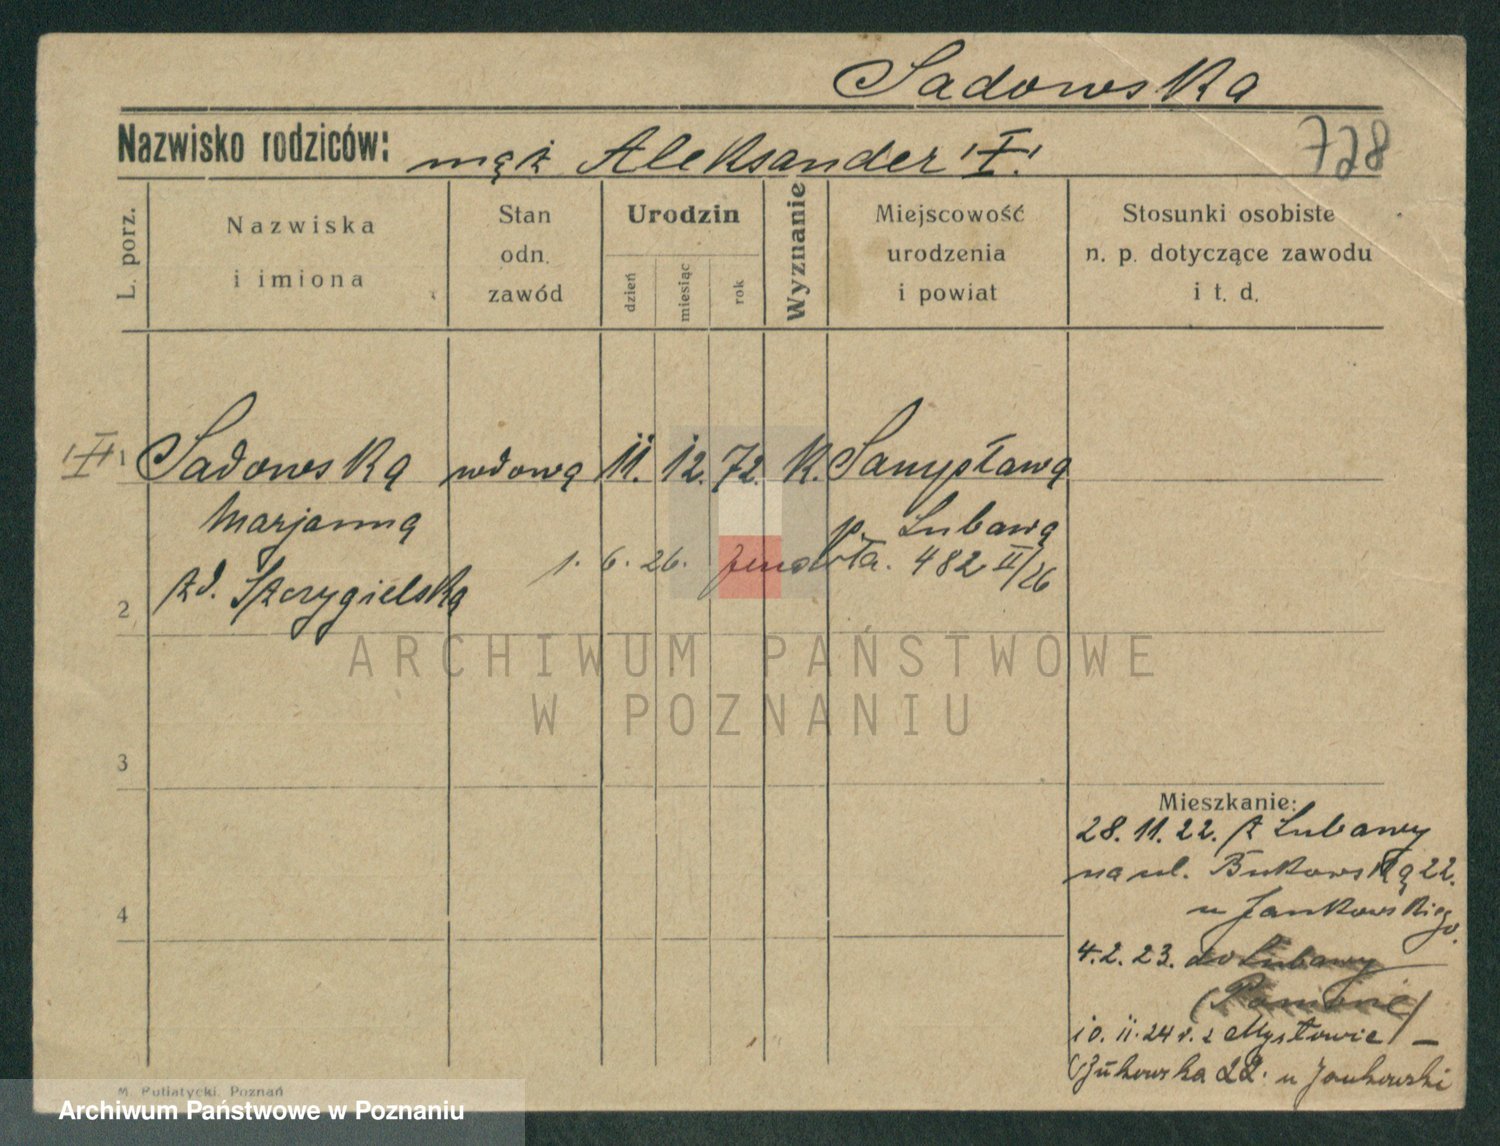 Sadowska
Nazwisko rodziców: mąż Aleksander "I".
728
L. porz.
Nazwiska
i imiona
Stan
odn.
zawód
Urodzin
dzień
miesiąc
rok
Wyznanie
Miejscowość
urodzenia
i powiat
Stosunki osobiste
n. p. dotyczące zawodu
i t. d.
"II" Sadowska wdowa 11. 12. 72. K. Sampława
Marjanna p. Lubawa
1. 6. 26. 482 II/26
2 zd. Szczygielska
ARCHIWUM PAŃSTWOWE
W POZNANIU
3
Mieszkanie:
28. 11. 22. z Lubawy
na ul. Bukowską 22.
u Jankowskiego.
4
4. 2. 23. do Lubawy
10. 11. 24 r. z Mysłowic –
Bukowska 22. u Jankowski
M. Putiatycki, Poznań
Archiwum Państwowe w Poznaniu